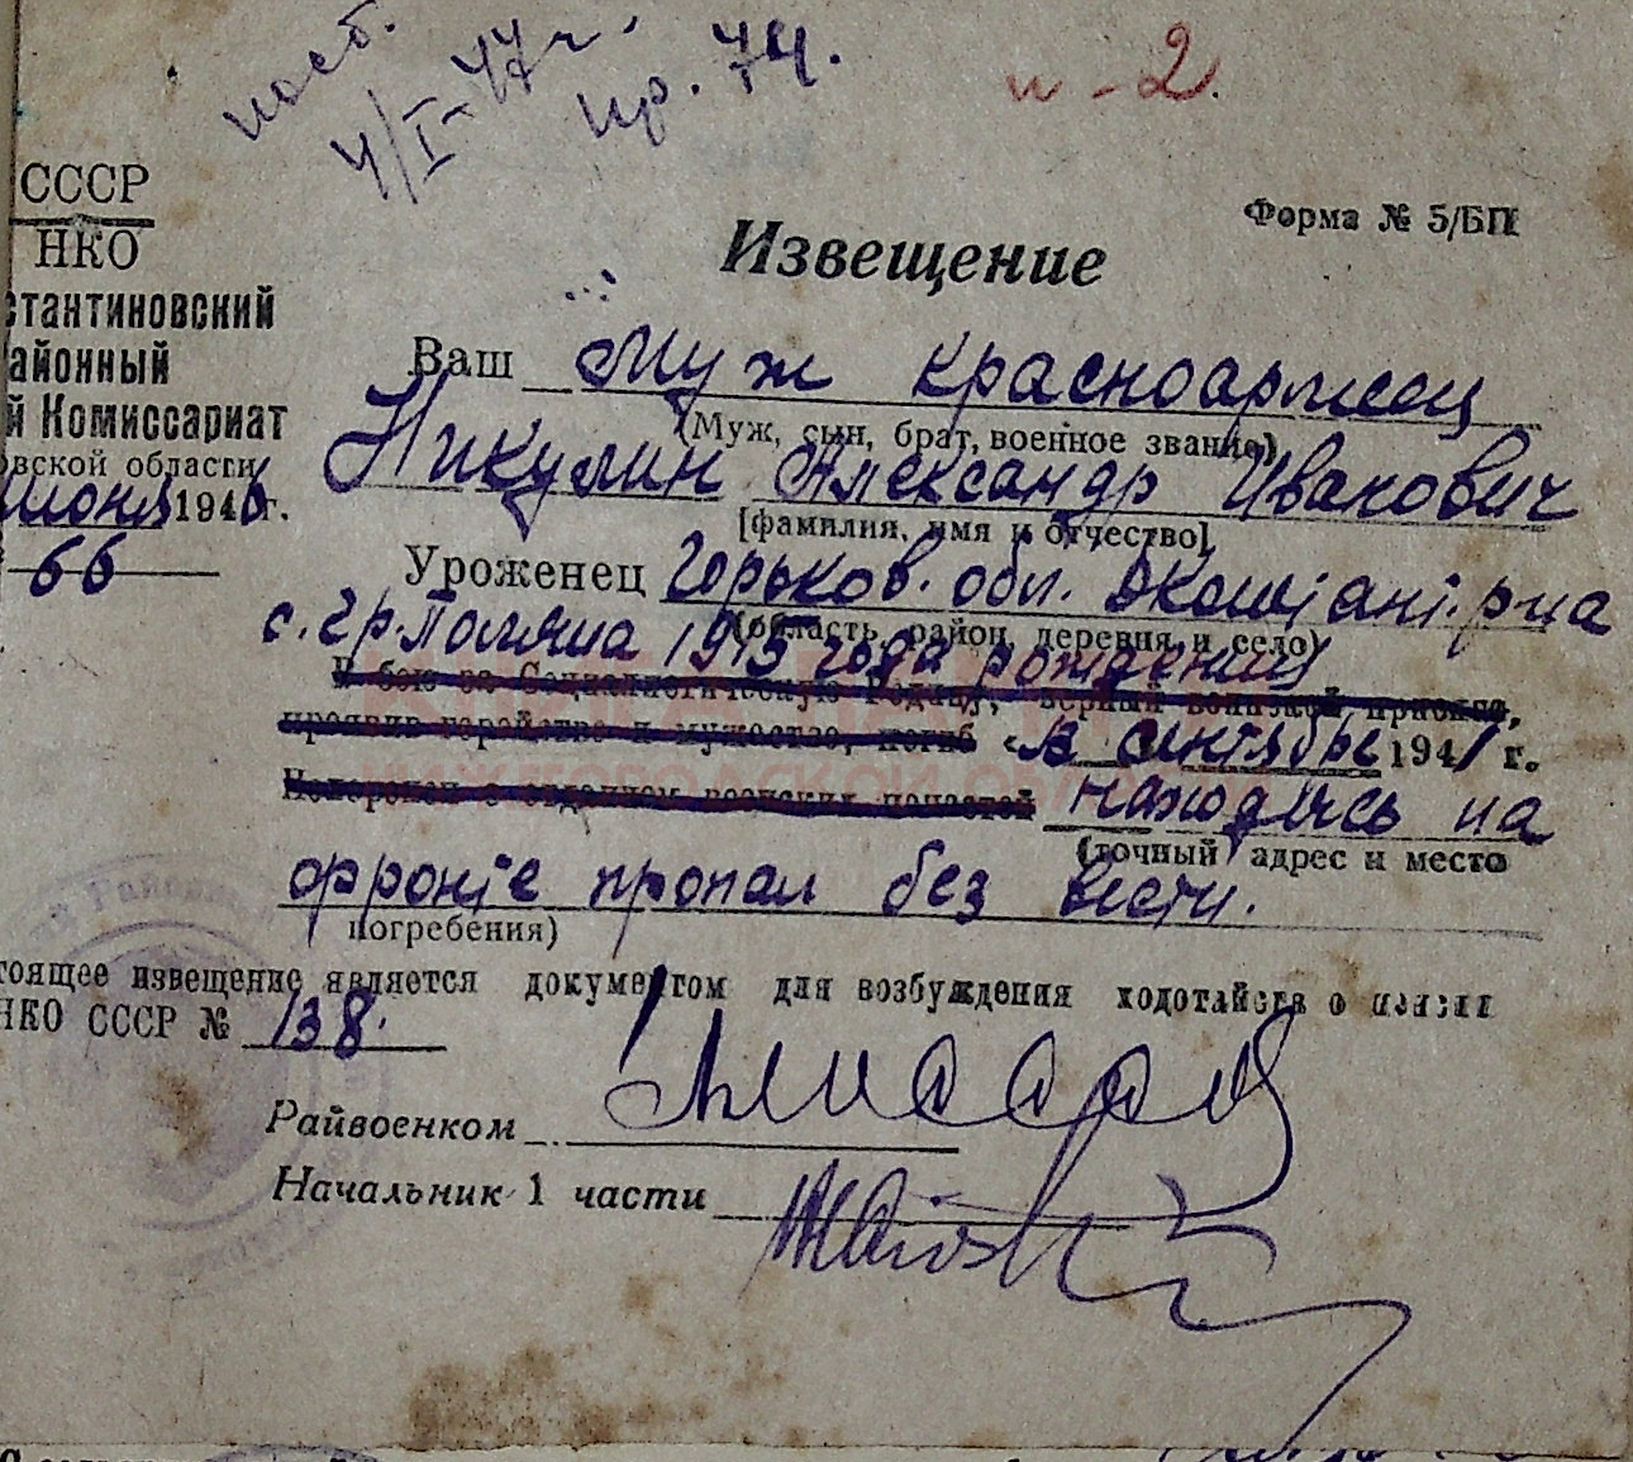 пособ.
4/I-47 г.
пр. 74.
и-2.
СССР
НКО
стантиновский
айонный
й Комиссариат
овской области
июня 1946 г.
66
Форма № 5/БП
Извещение
Ваш муж красноармеец
(Муж, сын, брат, военное звание)
Никулин Александр Иванович
[фамилия, имя и отчество]
Уроженец Горьков. обл. Дконстант. р-на
(область, район, деревня и село)
с. гр. Поляна 1915 года рождения
В бою за Социалистическую Родину, верный воинской присяге,
проявив геройство и мужество, погиб «в сентябре 1941 г.
Похоронен с отданием воинских почестей находясь на
(точный адрес и место
фронте пропал без вести.
погребения)
тоящее извещение является документом для возбуждения ходотайства о пенсии
НКО СССР № 138.
Райвоенком
Начальник 1 части